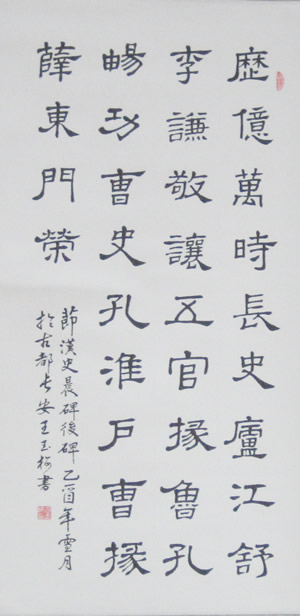 歷億萬時長史廬江舒
李謙敬讓五官掾魯孔
暢功曹史孔淮戶曹掾
薛東門榮
節漢史晨碑後碑乙酉年雪月
於古都长安王玉梅書